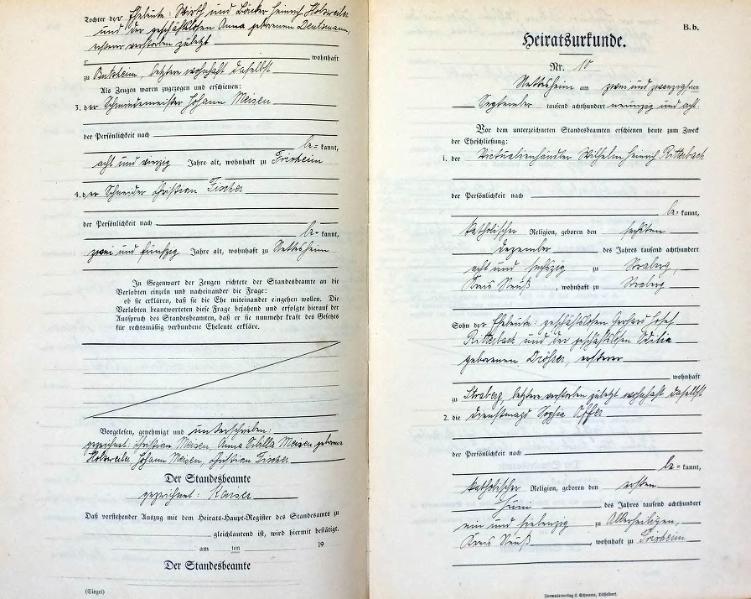 Tochter der Eheleute: Wirth und Bäcker Heinrich Holzweiler
und der geschäftslosen Anna geborenen Deutzmann,
ersterer verstorben zuletzt
wohnhaft
zu letztere wohnhaft daselbst
Als Zeugen waren zugezogen und erschienen:
3. der Schmiedemeister Johann Meisen
der Persönlichkeit nach
be-kannt,
acht und vierzig Jahre alt, wohnhaft zu Frixheim
4. der Schneider Christian Fischer
der Persönlichkeit nach
be-kannt,
zwei und fünfzig Jahre alt, wohnhaft zu Nettesheim
In Gegenwart der Zeugen richtete der Standesbeamte an die
Verlobten einzeln und nacheinander die Frage:
ob sie erklären, daß sie die Ehe miteinander eingehen wollen. Die
Verlobten beantworteten diese Frage bejahend und erfolgte hierauf der
Ausspruch des Standesbeamten, daß er sie nunmehr kraft des Gesetzes
für rechtsmäßig verbundene Eheleute erkläre.
Vorgelesen, genehmigt und unterschrieben:
gezeichnet: Christian Meisen, Anna Sibilla Meisen geborene
Holzweiler, Johann Meisen, Christian Fischer
Der Standesbeamte
gezeichnet:
Daß vorstehender Auszug mit dem Heirats-Haupt-Register des Standesamts zu
gleichlautend ist, wird hiermit bestätigt.
am ten 19
Der Standesbeamte
(Siegel)
B.b.
Heiratsurkunde.
Nr. 10
Nettesheim am zwei und zwanzigsten
September tausend achthundert neunzig und acht
Vor dem unterzeichneten Standesbeamten erschienen heute zum Zweck
der Eheschließung:
1. der Victualienhändler Wilhelm Heinrich Ritterbach
der Persönlichkeit nach
be-kannt,
katholischer Religion, geboren den sechsten
Dezember des Jahres tausend achthundert
acht und sechzig zu Straberg,
Kreis Neuß wohnhaft zu Straberg
Sohn der Eheleute: geschäftslosen Gerhard Josef
Ritterbach und der geschäftslosen
geborenen ersterer
wohnhaft
zu Straberg, letztere verstorben zuletzt wohnhaft daselbst
2. die Dienstmagd Sophia Offer
der Persönlichkeit nach
be-kannt,
katholischer Religion, geboren den ersten
Juni des Jahres tausend achthundert
ein und siebenzig zu Allerheiligen,
Kreis Neuß, wohnhaft zu Frixheim